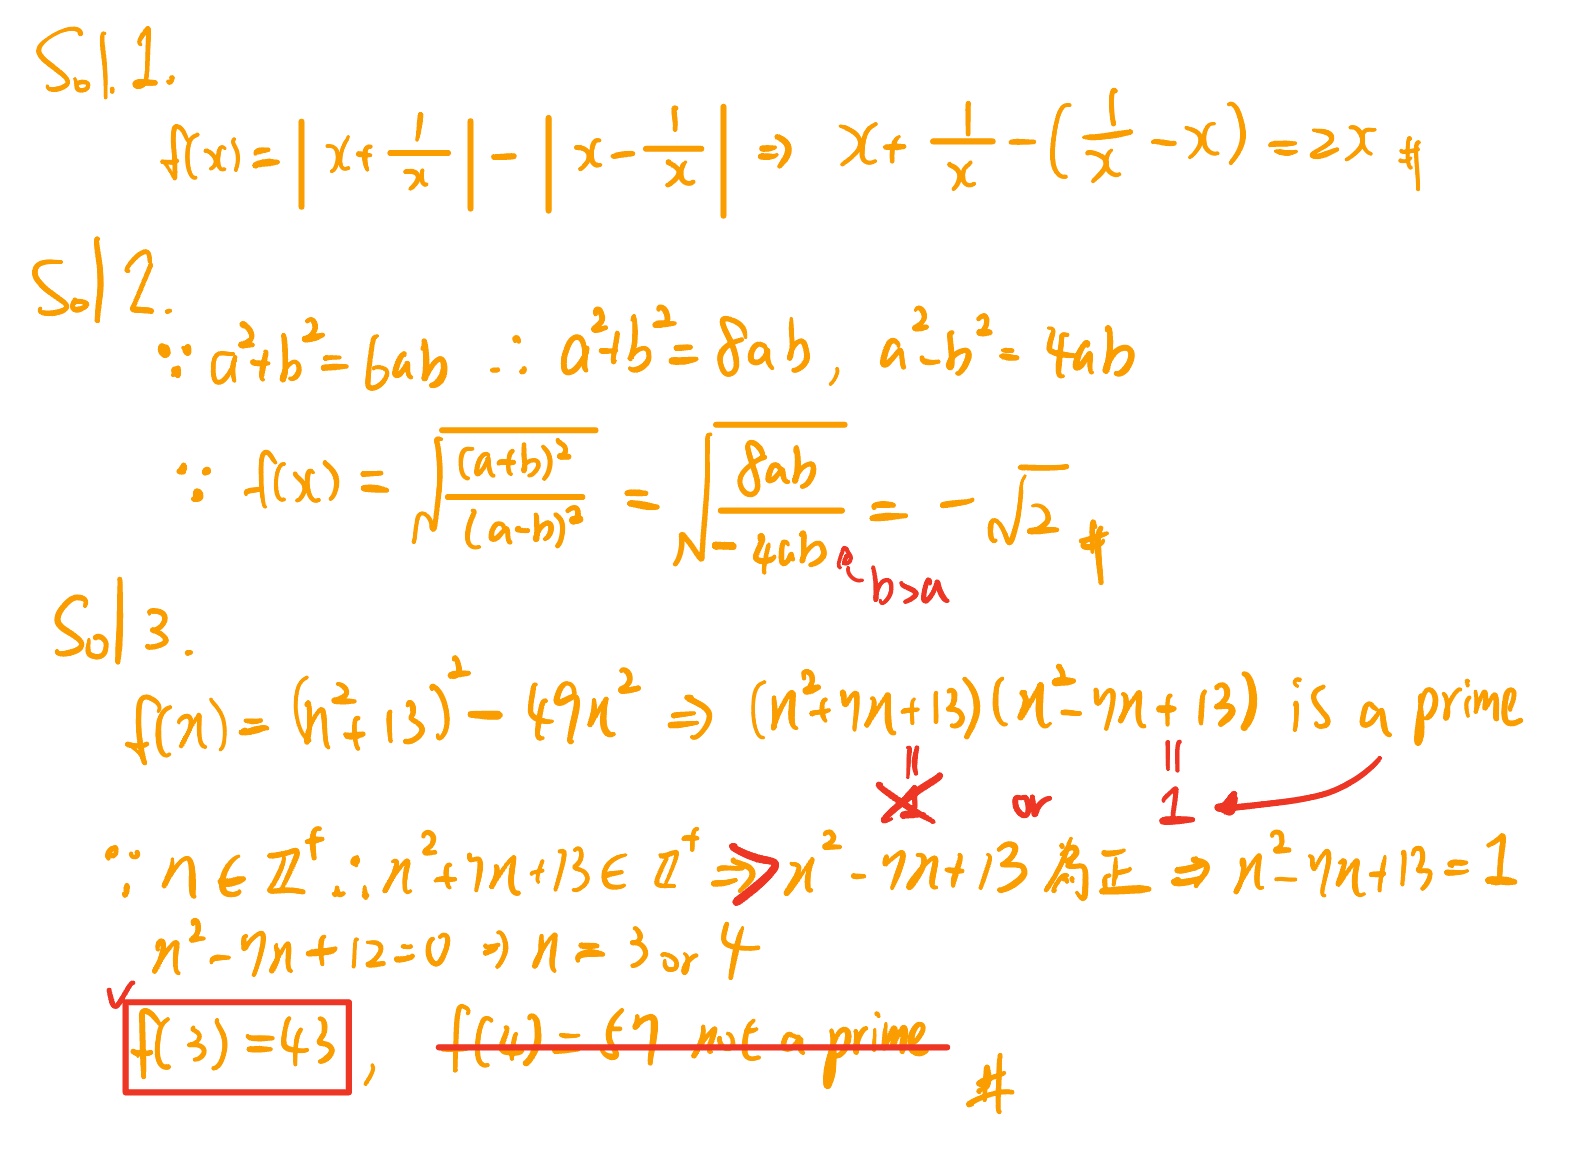 Sol.1.
f(x) = | x + 1/x | - | x - 1/x | ⇒ x + 1/x - (1/x - x) = 2x #
Sol 2.
∵ a²+b² = 6ab ∴ a²+b² = 8ab, a²-b² = 4ab
∵ f(x) = √((a+b)²/(a-b)²) = √(8ab/-4ab) = -√2 #
b>a
Sol 3.
f(n) = (n²+13)² - 49n² ⇒ (n²+7n+13)(n²-7n+13) is a prime
= 1 or = 1
∵ n ∈ ℤ⁺ ∴ n²+7n+13 ∈ ℤ⁺ ⇒ n²-7n+13 為正 ⇒ n²-7n+13 = 1
n²-7n+12=0 ⇒ n = 3 or 4
✓ f(3) = 43, f(4) = 57 not a prime #